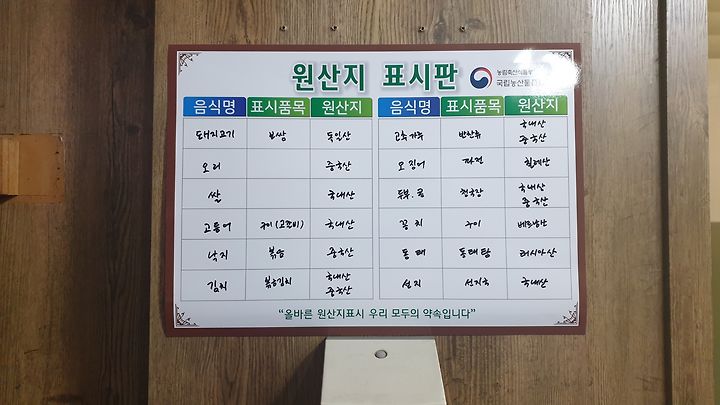 원산지 표시판
농림축산식품부
국립농산물
음식명 표시품목 원산지 음식명 표시품목 원산지
돼지고기 보쌈 독일산 고춧가루 반찬류 국내산 중국산
오리 중국산 오징어 파전 칠레산
쌀 국내산 두부.콩 청국장 국내산 중국산
고등어 구이(고갈비) 국내산 꽁치 구이 베트남산
낙지 볶음 중국산 동태 동태탕 러시아산
김치 볶음김치 국내산 중국산 선지 선지국 국내산
"올바른 원산지표시 우리 모두의 약속입니다"